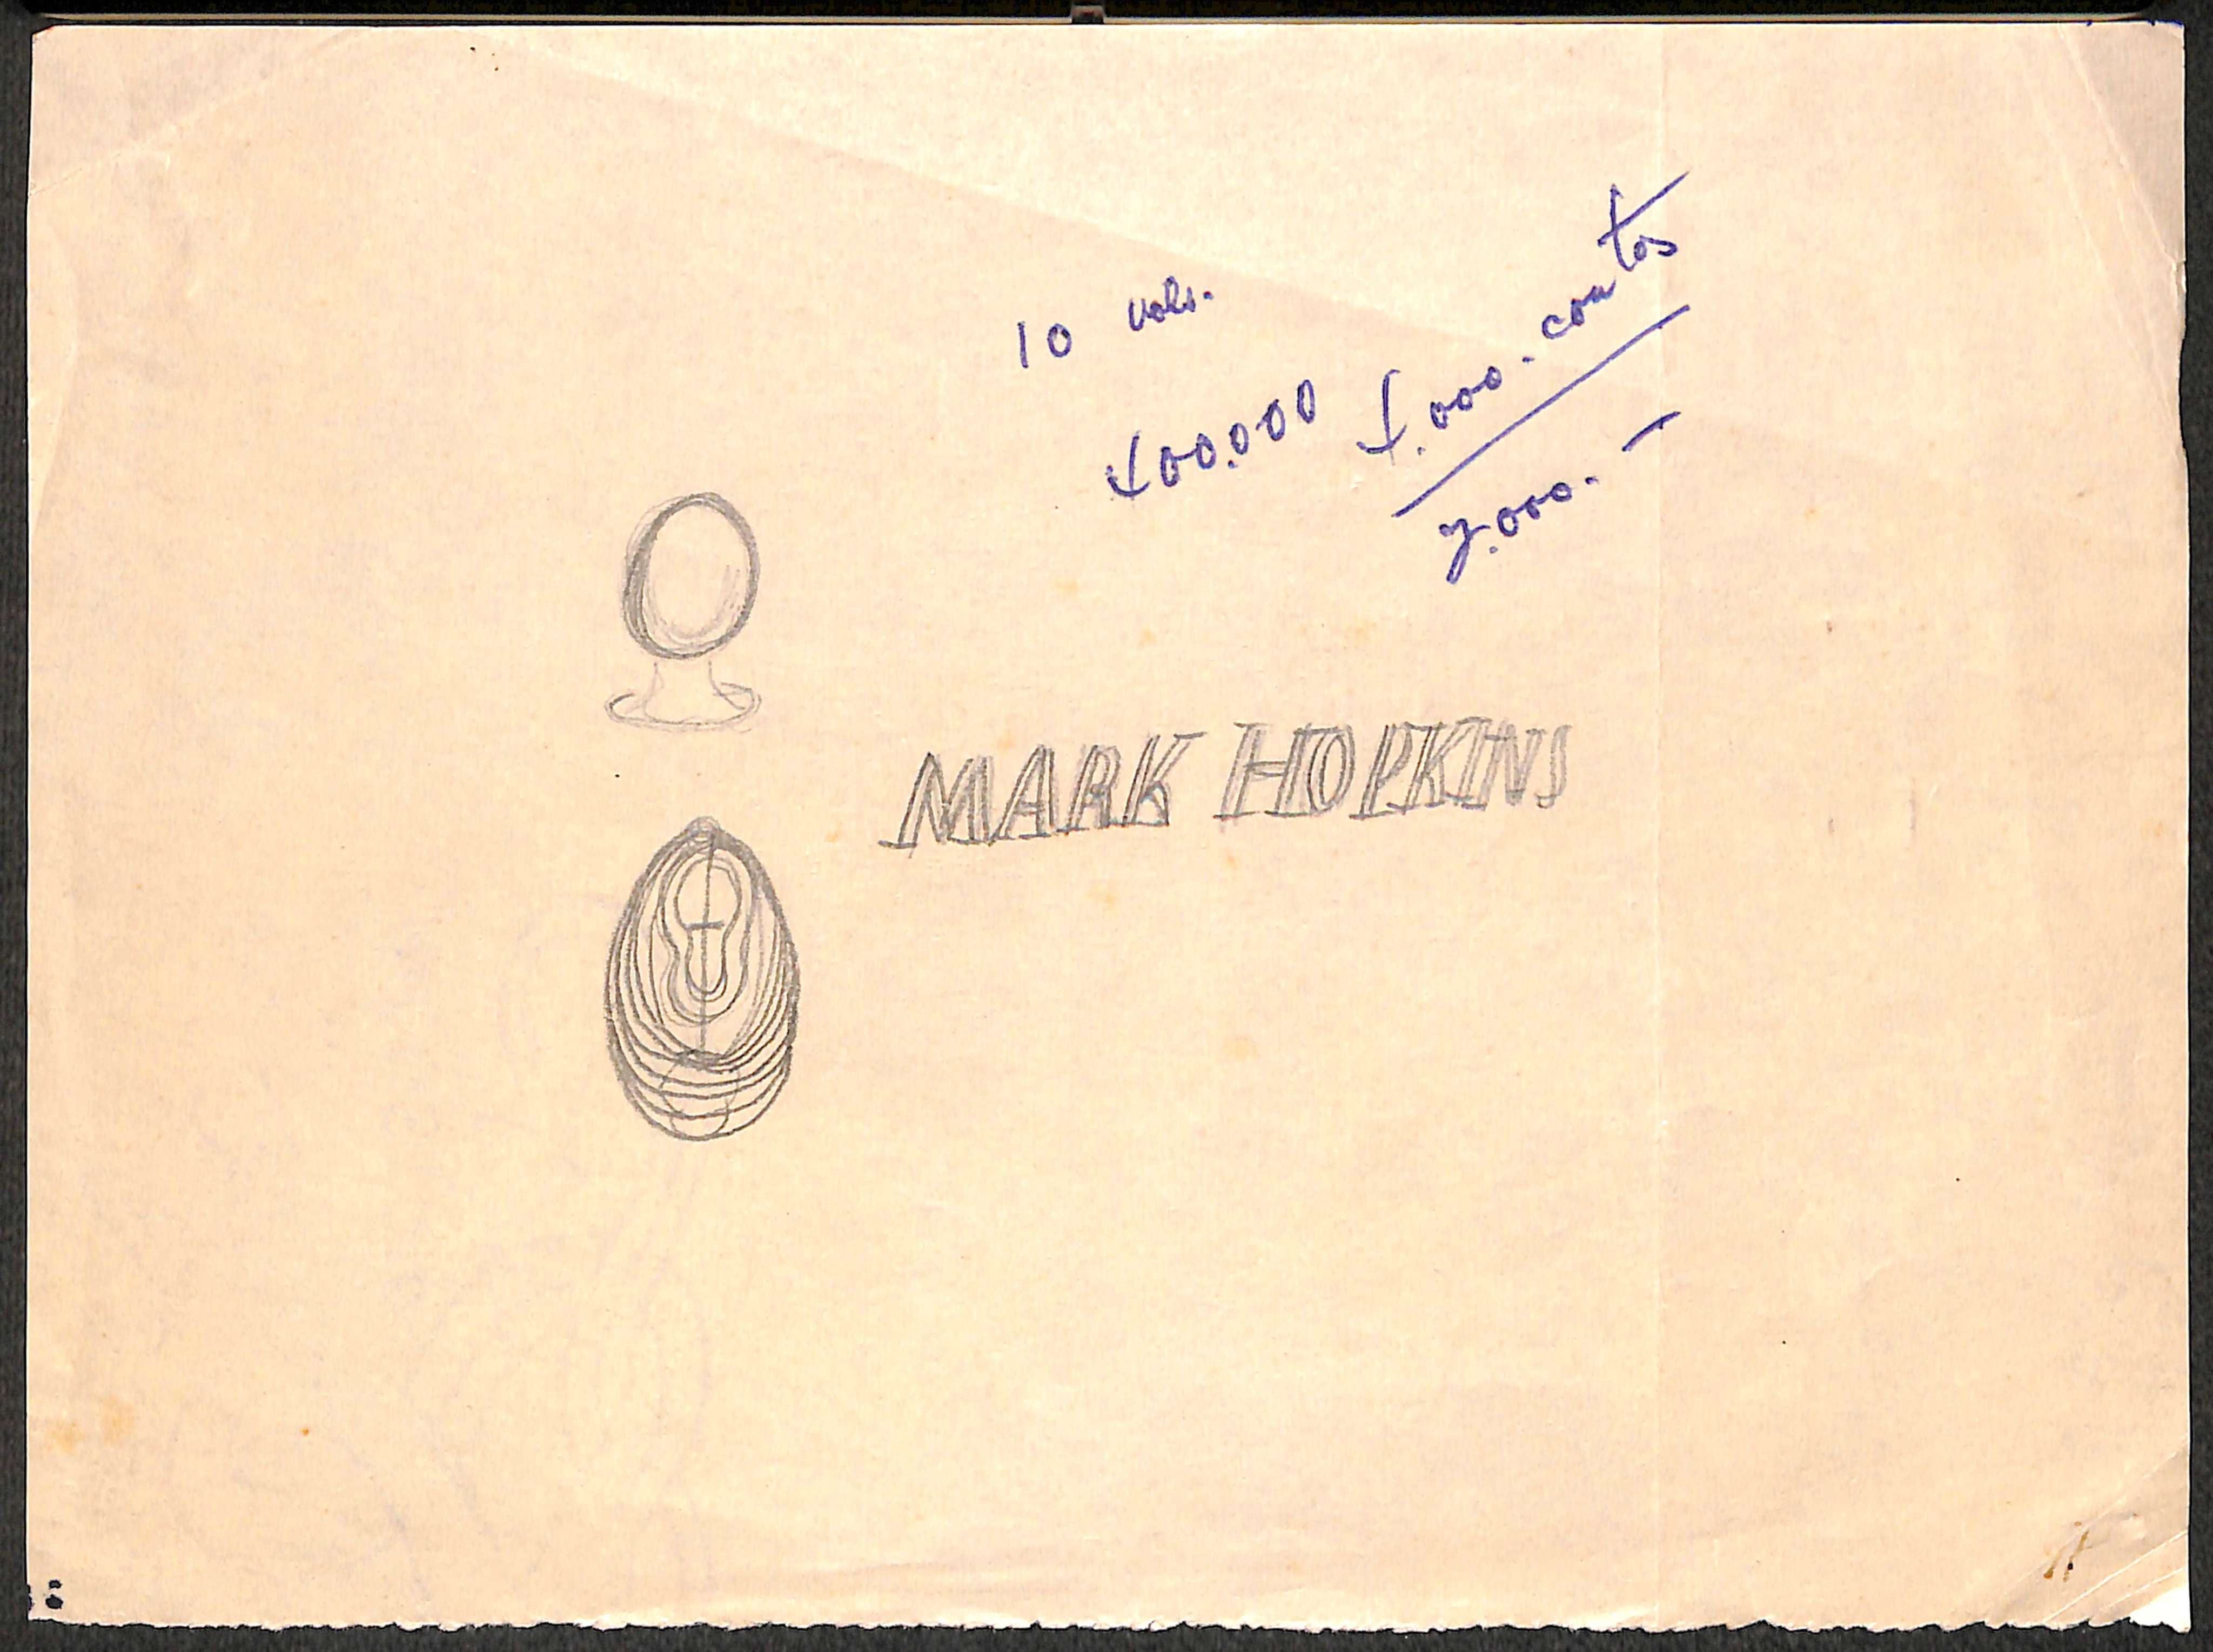 10 vols.
400.000 4.000. contos
7.000. —
MARK HOPKINS